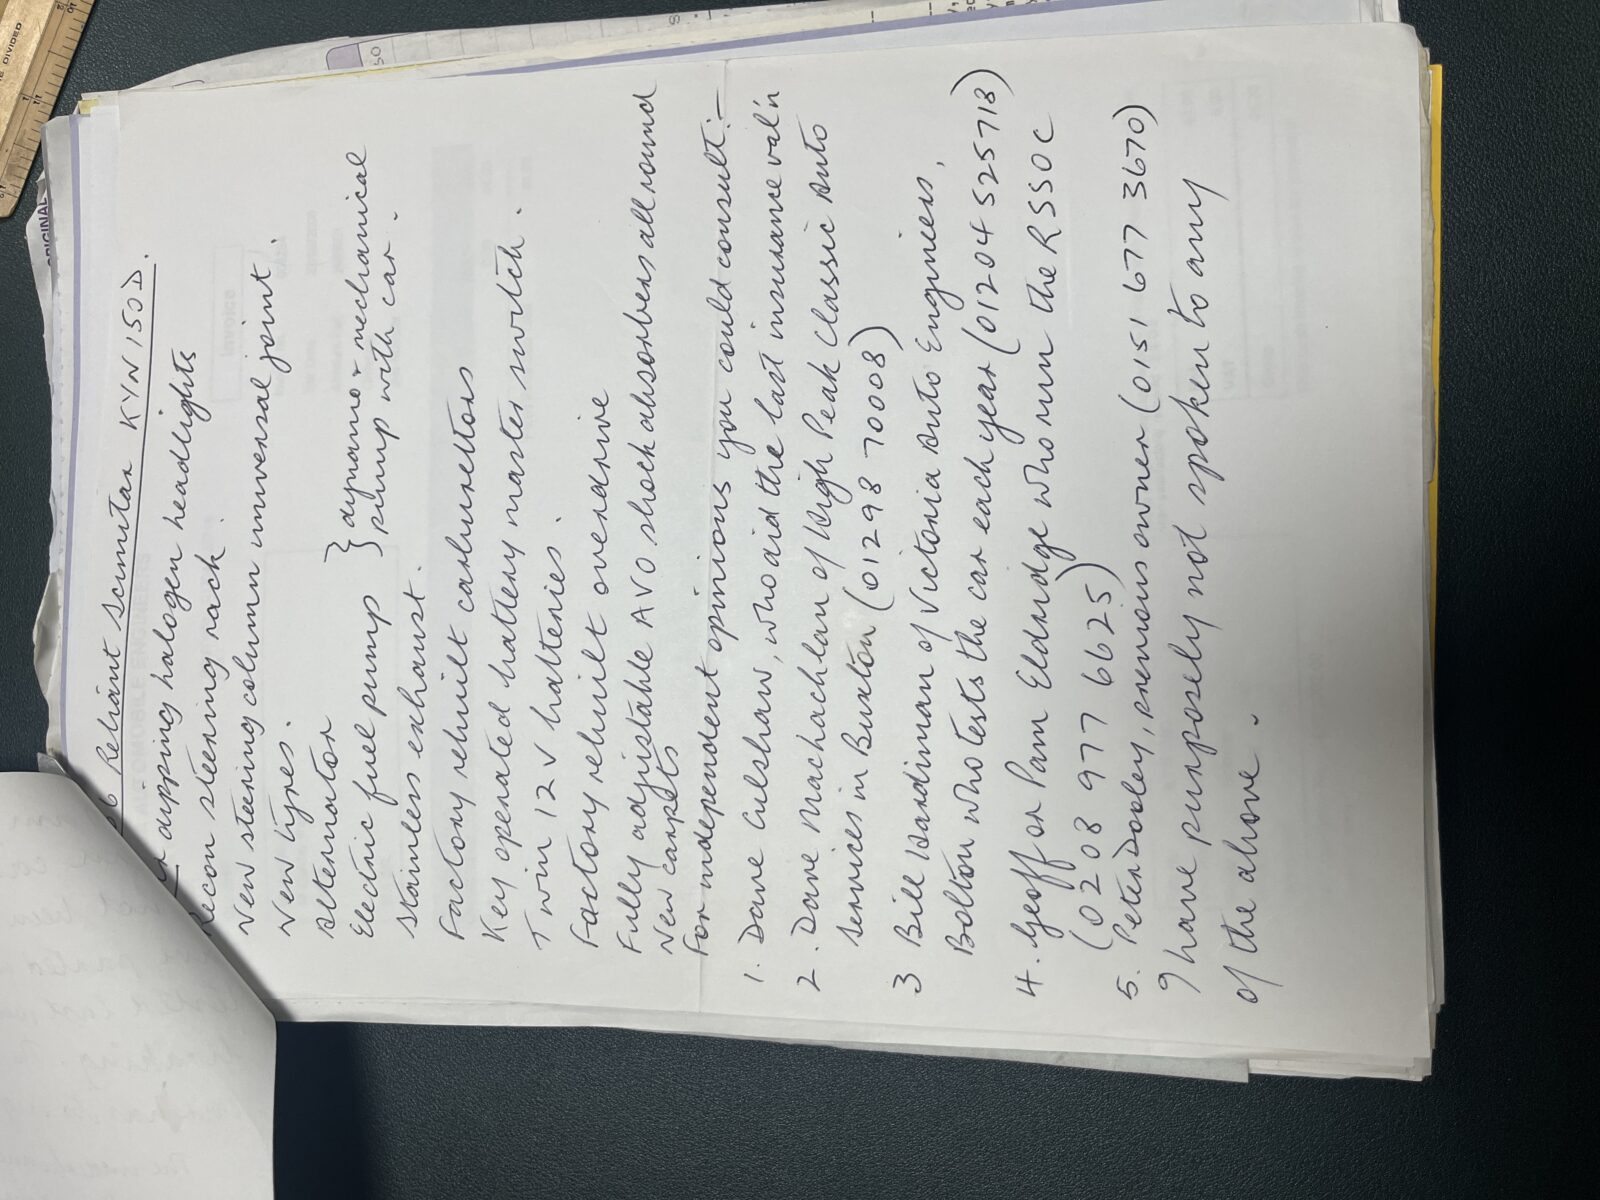 66 Reliant Scimitar KYN 150D.
dipping halogen headlights
Recon steering rack.
New steering column universal joint.
New tyres.
Alternator
Electric fuel pump } dynamo + mechanical pump with car.
Stainless exhaust.
Factory rebuilt carburettors
Key operated battery master switch.
Twin 12V batteries.
Factory rebuilt overdrive
Fully adjistable AVO shock absorbers all round
New carpets
For independent opinions you could consult:-
1. Dave Culshaw, who did the last insurance val'n
2. Dave Machachlan of High Peak Classic Auto
Services in Buxton (01298 70008)
3 Bill Hardiman of Victoria Auto Engineers,
Bolton who tests the car each year (01204 525718)
4. Geoff or Pam Eldridge who run the RSSOC
(0208 977 6625)
5. Peter Dooley, previous owner (0151 677 3670)
I have purposely not spoken to any
of the above.
ORIGINAL
Invoice